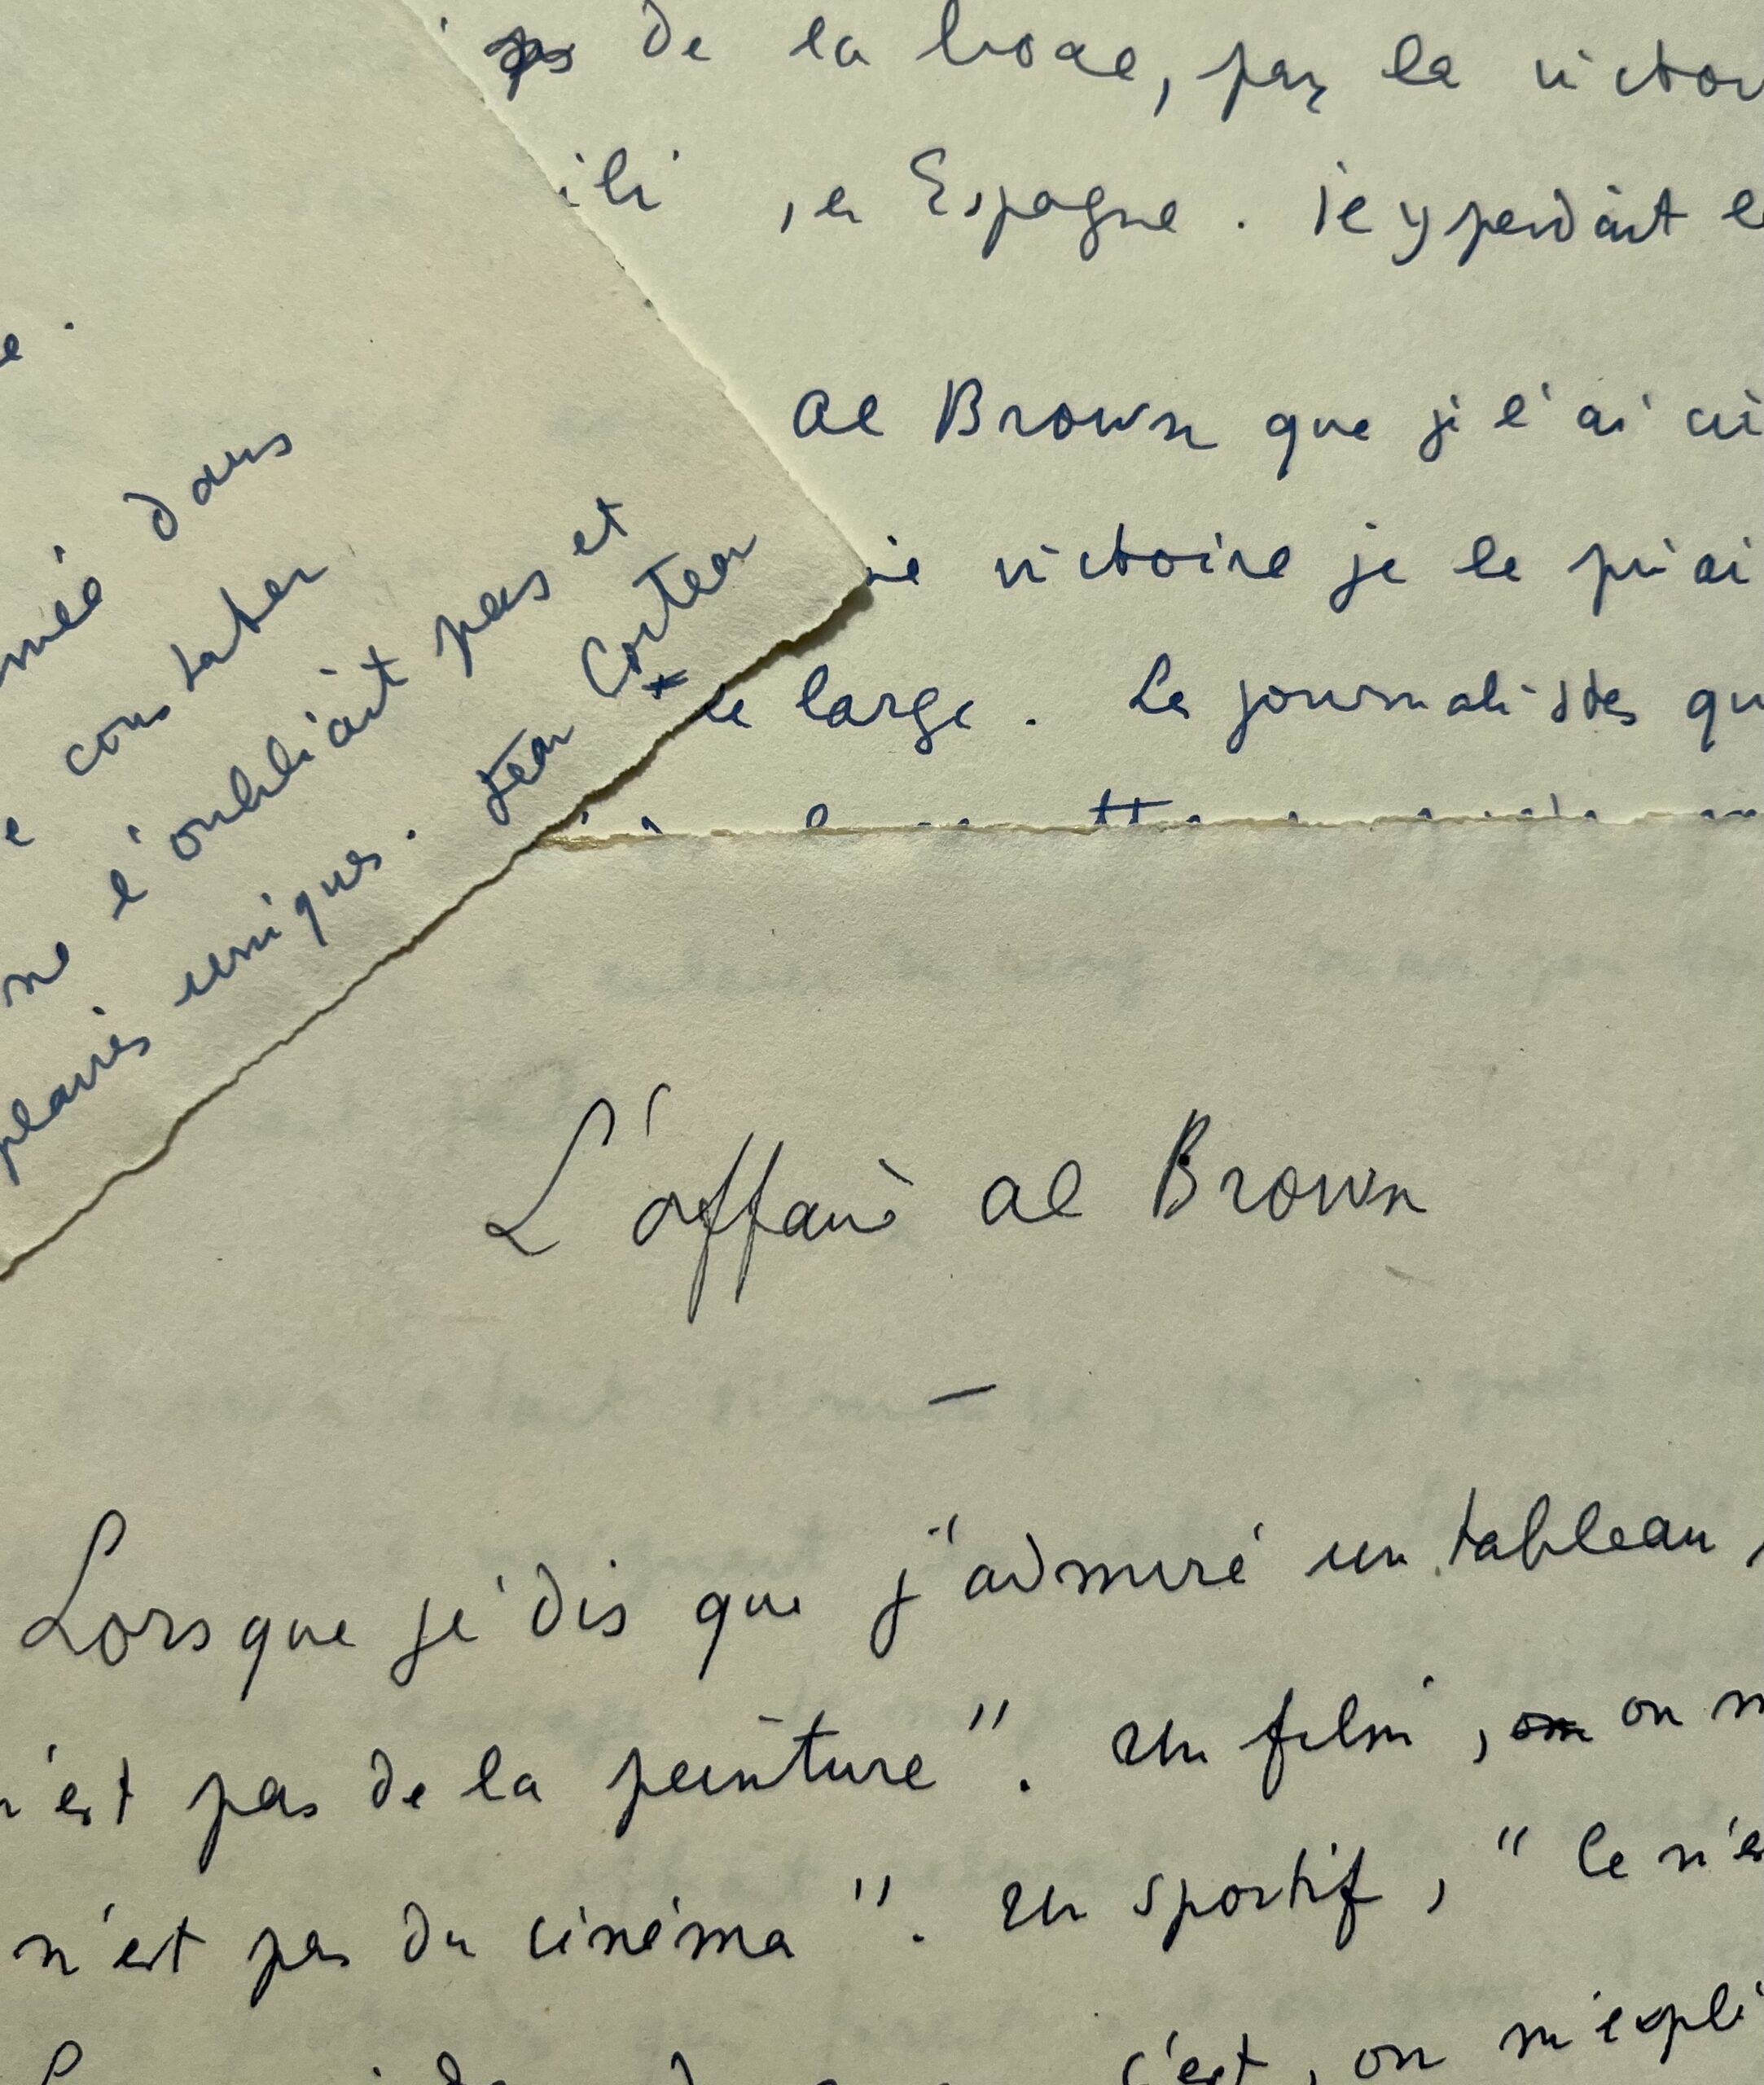 de la boxe, par la
, en Espagne. Il y perdait
Al Brown que je l'ai
victoire je le priai
le large. Les journalistes
dans
constater
ne l'oubliait pas et
uniques. Jean Cocteau
L'affaire Al Brown
—
Lorsque je dis que j'admire un tableau,
n'est pas de la peinture". Un film, on
n'est pas du cinéma". Un sportif, "Ce
c'est, on